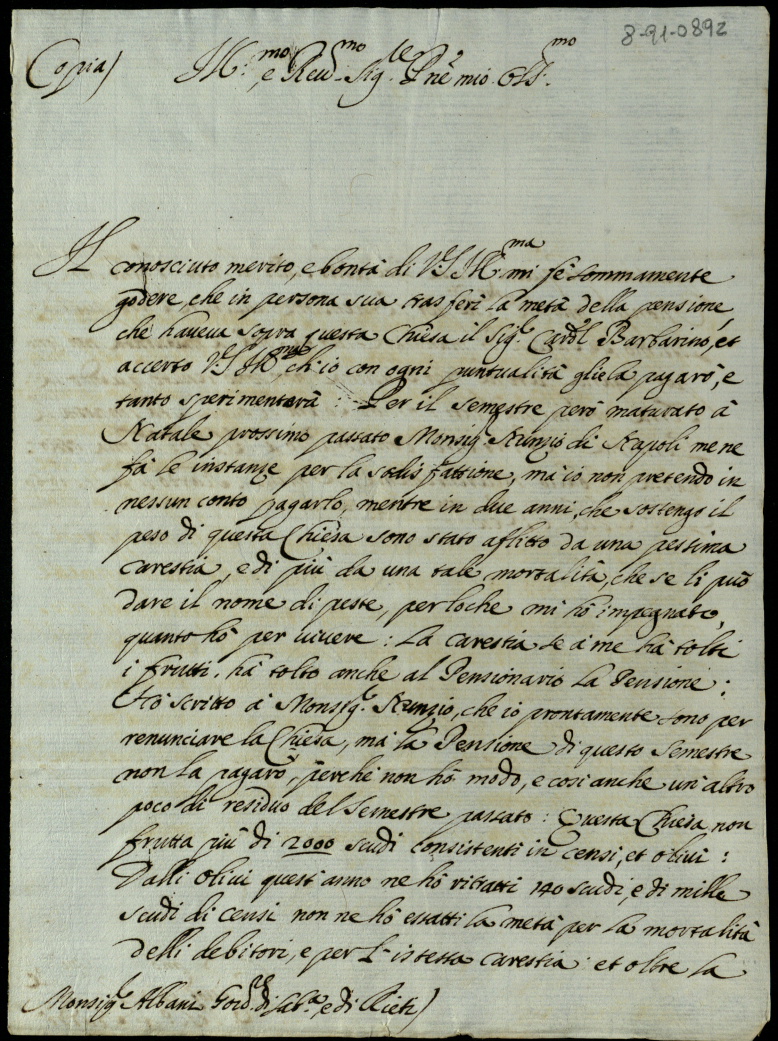 8-91-0892
Copia) Ill.mo e Rev.mo Sig.re P.ne mio Oss.mo
Il conosciuto merito, e bontà di V.S. Ill.ma mi fè sommamente
godere, che in persona sua trasferì la metà della pensione,
che haveva sopra questa Chiesa il Sig.r Card.l Barbarino, et
accerto V.S. Ill.ma ch'io con ogni puntualità gliela pagarò, e
tanto sperimentarà: Per il semestre però maturato à
Natale prossimo passato Monsig.r Nunzio di Napoli me ne
fà le instanze per la sodisfattione, mà io non pretendo in
nessun conto pagarlo, mentre in due anni, che sostengo il
peso di questa Chiesa sono stato aflitto da una pessima
carestia, e di più da una tale mortalità, che se li può
dare il nome di peste, perloche mi hò impegnato,
quanto hò per vivere: La carestia se à me hà tolti
i frutti, hà tolto anche al Pensionario la Pensione:
Hò scritto à Monsig.r Nunzio, che io prontamente sono per
renunciare la Chiesa, mà la Pensione di questo semestre
non la pagarò, perche non hò modo, e così anche un'altro
poco di residuo del Semestre passato: Questa Chiesa non
frutta più di 2000 scudi consistenti in censi, et olivi:
Dalli olivi quest'anno ne hò ritratti 140 scudi, e di mille
scudi di censi non ne hò esatti la metà per la mortalità
delli debitori, e per l'istessa carestia: et oltre la
Monsig.r Albani Gov.re di Sab.a, e di Rieti)